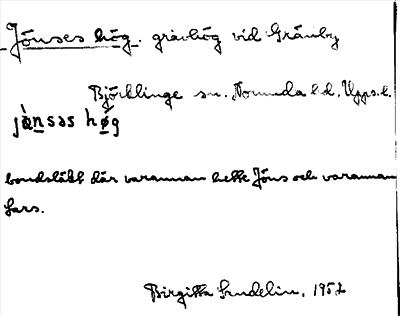 Jönses hög. gravhög vid Gränby
Björklinge sn. Norunda hd, Upps. l.
jö̀nsəs hö́g
bondsläkt där varannan hette Jöns och varannan
Lars.
Birgitta Sundelin, 1952